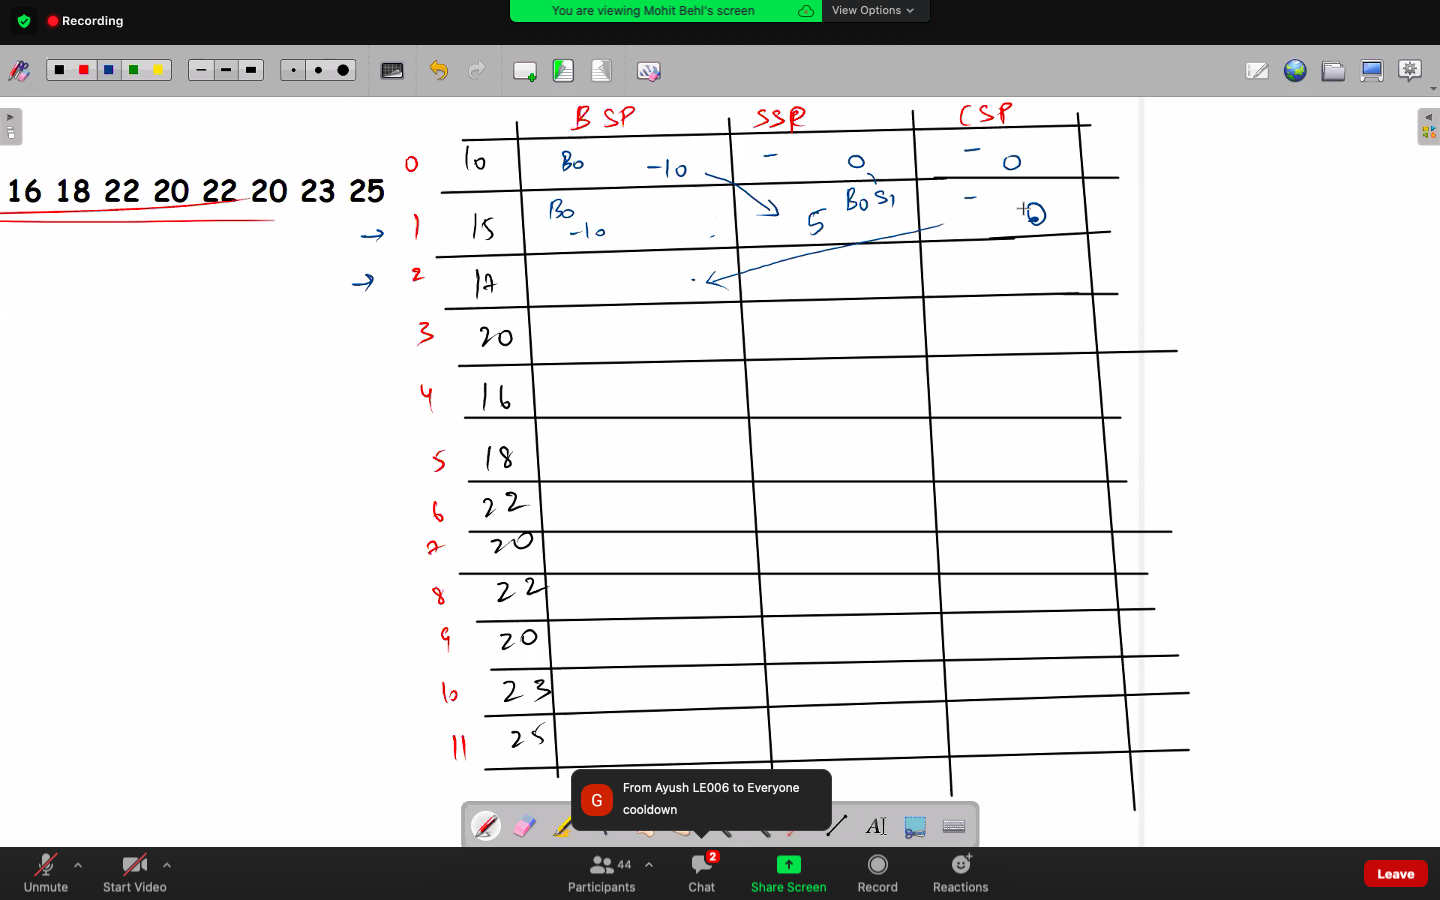 Recording
You are viewing Mohit Behl's screen
View Options
16 18 22 20 22 20 23 25
B SP SSP CSP
0 10 B0 -10 - 0 - 0
B0 S1
1 15 B0 -10 5 - 0
2 17
3 20
4 16
5 18
6 22
7 20
8 22
9 20
10 23
11 25
From Ayush LE006 to Everyone
G
cooldown
A
44
2
Unmute Start Video Participants Chat Share Screen Record Reactions Leave